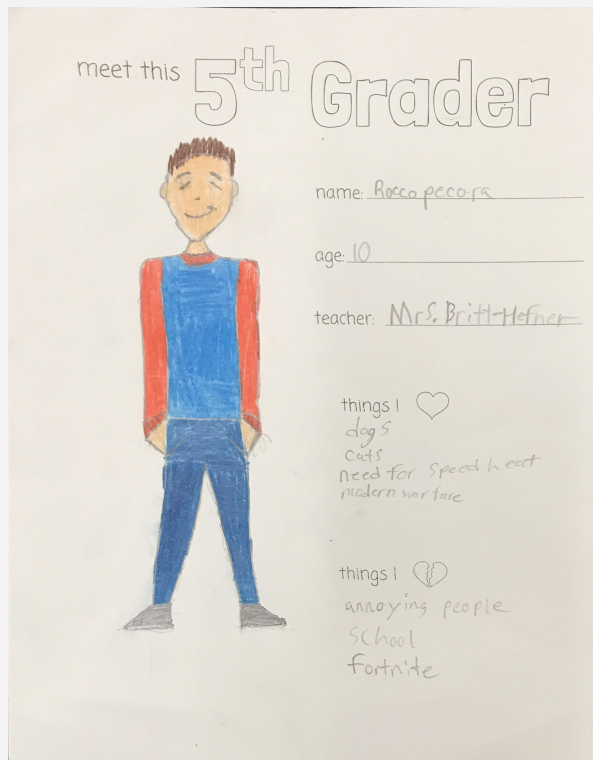 meet this 5th Grader
name: Rocco pecora
age: 10
teacher: Mrs. Britt-Hefner
things I
dogs
cats
need for speed heat
modern warfare
things I
annoying people
school
fortnite